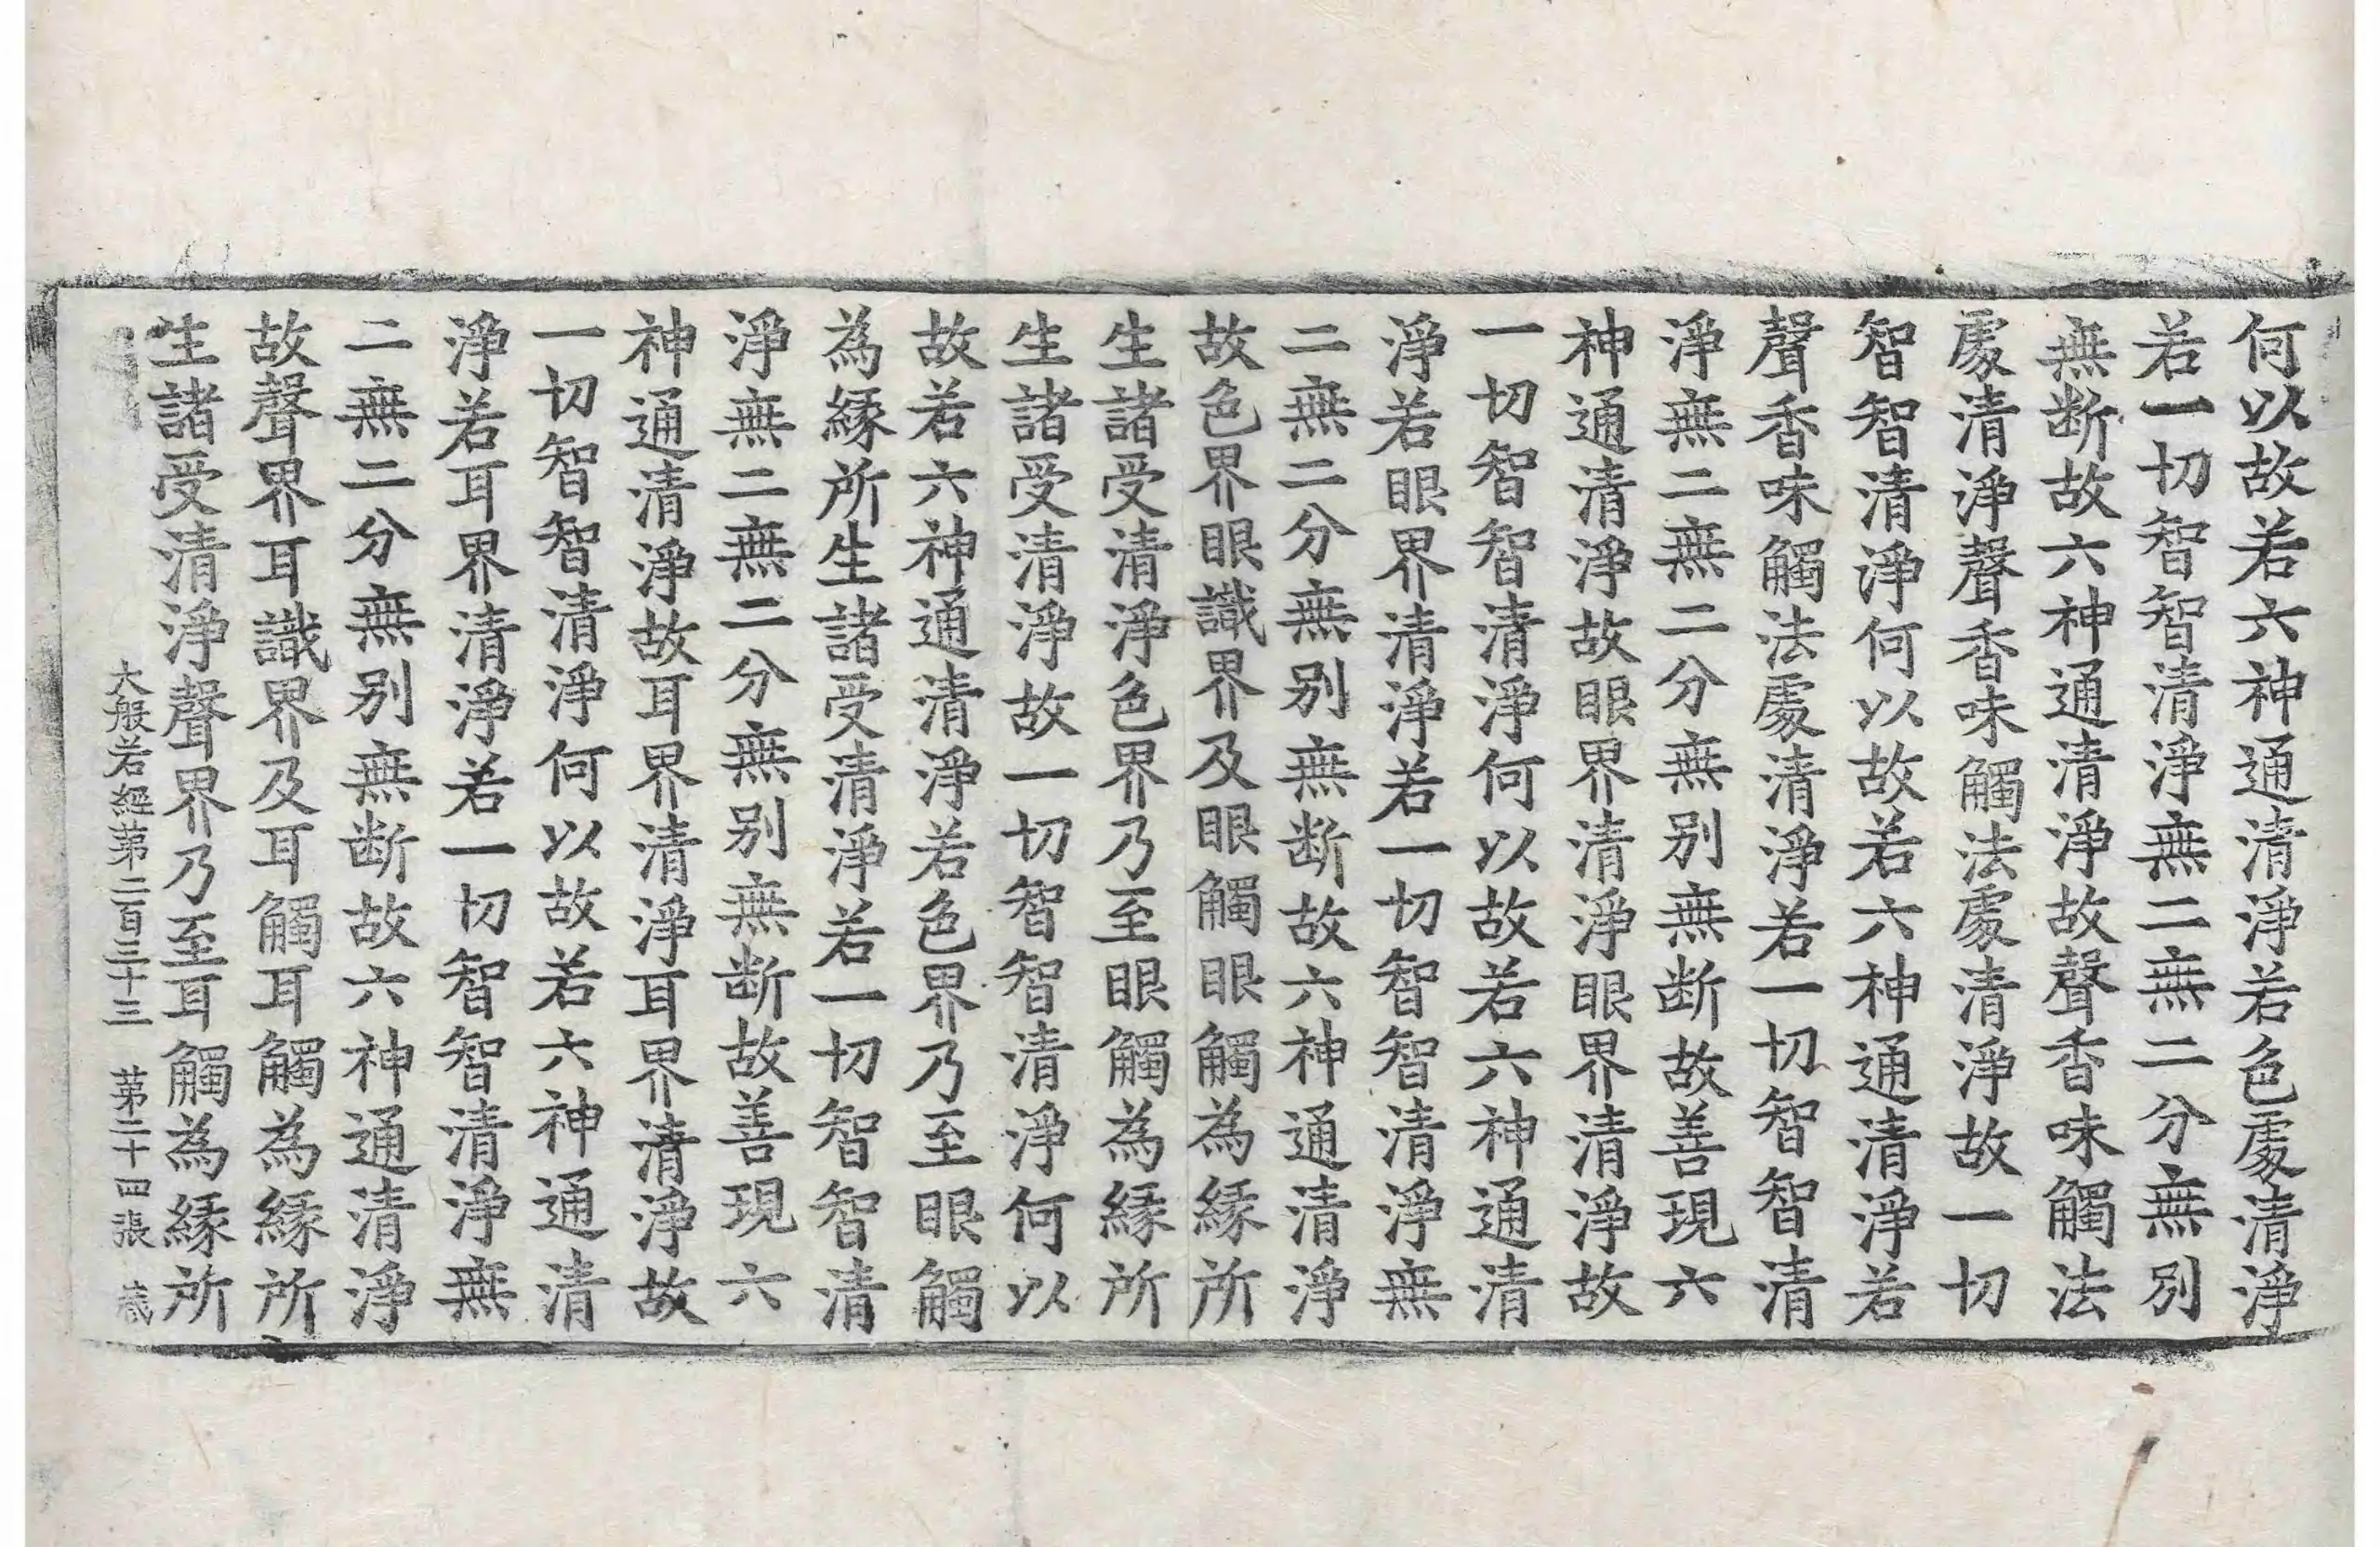 何以故若六神通清淨若色處清淨
若一切智智清淨無二無二分無別
無断故六神通清淨故聲香味觸法
處清淨聲香味觸法處清淨故一切
智智清淨何以故若六神通清淨若
聲香味觸法處清淨若一切智智清
淨無二無二分無别無断故善現六
神通清淨故眼界清淨眼界清淨故
一切智智清淨何以故若六神通清
淨若眼界清淨若一切智智清淨無
二無二分無别無断故六神通清淨
故色界眼識界及眼觸眼觸為緣所
生諸受清淨色界乃至眼觸為緣所
生諸受清淨故一切智智清淨何以
故若六神通清淨若色界乃至眼觸
為緣所生諸受清淨若一切智智清
淨無二無二分無别無断故善現六
神通清淨故耳界清淨耳界清淨故
一切智智清淨何以故若六神通清
淨若耳界清淨若一切智智清淨無
二無二分無别無断故六神通清淨
故聲界耳識界及耳觸耳觸為緣所
生諸受清淨聲界乃至耳觸為緣所
大般若經第二百三十三 第二十四張